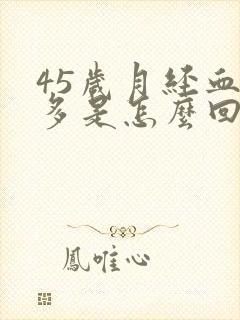 45歲月經血
多是怎麼回
鳳唯心